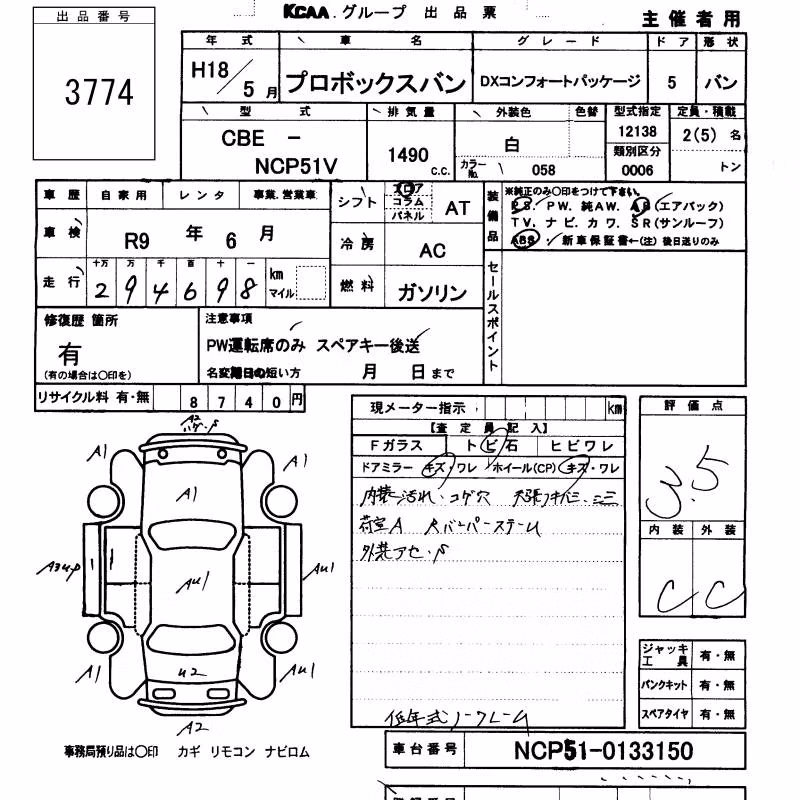 KCAA.グループ 出品票
主催者用
出品番号
3774
年式 車名 グレード ドア 形状
H18/5月 プロボックスバン DXコンフォートパッケージ 5 バン
型式 排気量 外装色 色替 型式指定 定員・積載
CBE - NCP51V
1490 c.c.
白
カラーNo. 058
12138
類別区分
0006
2(5)名
トン
車歴 自家用 レンタ 事業.営業車
車検 R9年6月
走行 十万 万 千 百 十 一
294698 km マイル
シフト フロア コラム パネル AT
冷房 AC
燃料 ガソリン
装備品
※純正のみ○印をつけて下さい。
PS. PW. 純AW. AB(エアバック)
TV. ナビ. カワ. SR(サンルーフ)
ABS. 新車保証書←(注) 後日送りのみ
セールスポイント
修復歴 箇所
有
(有の場合は○印を)
注意事項
PW運転席のみ スペアキー後送
名変期日の短い方 月 日まで
リサイクル料 有・無 8740円
現メーター指示 km
【査定員記入】
Fガラス トビ石 ヒビワレ
ドアミラー キズ・ワレ ホイール(CP) キズ・ワレ
内装 汚れ・コゲ穴
荷室A
外装
評価点
3.5
内装 外装
C C
A2
A1 A1
A1
AU1
AU1
A1 AU1
U2
A2
ジャッキ工具 有・無
パンクキット 有・無
スペアタイヤ 有・無
低年式ノークレーム
事務局預り品は○印 カギ リモコン ナビロム
車台番号 NCP51-0133150